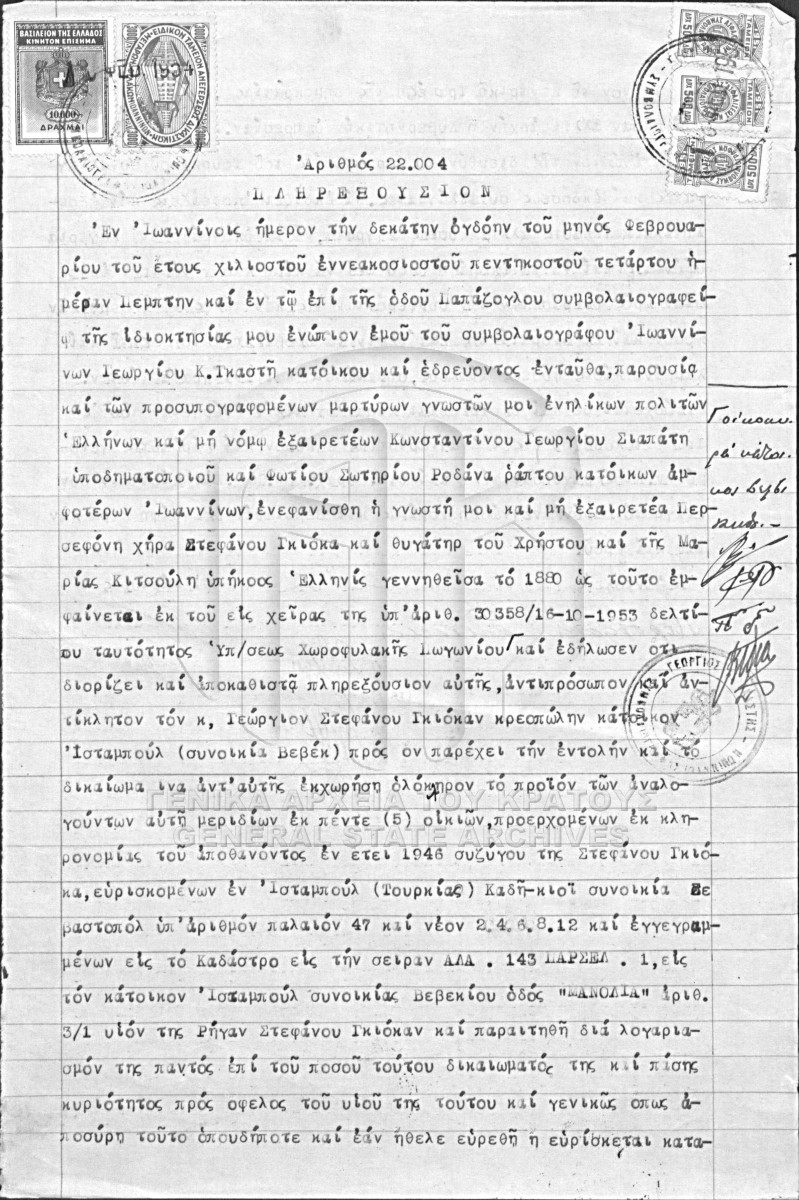 ΒΑΣΙΛΕΙΟΝ ΤΗΣ ΕΛΛΑΔΟΣ
ΚΙΝΗΤΟΝ ΕΠΙΣΗΜΑ
10.000
ΔΡΑΧΜΑΙ
Ἀριθμός 22.004
ΠΛΗΡΕΞΟΥΣΙΟΝ
Ἐν Ἰωαννίνοις ἡμερον τήν δεκάτην ὀγδόην τοῦ μηνός Φεβρουα-
ρίου τοῦ ἐτους χιλιοστοῦ ἐννεακοσιοστοῦ πεντηκοστοῦ τετάρτου ἡ-
μέραν Πεμπτην καί ἐν τῷ ἐπί τῆς ὁδοῦ Σαπάζογλου συμβολαιογραφεί-
ῳ τῆς ἰδιοκτησίας μου ἐνώπιον ἐμοῦ τοῦ συμβολαιογράφου Ἰωαννί-
νων Γεωργίου Κ.Γκαστῆ κατόικου καί ἑδρεύοντος ἐνταῦθα,παρουσίᾳ
καί τῶν προσυπογραφομένων μαρτύρων γνωστῶν μοι ἐνηλίκων πολιτῶν
Ἑλλήνων καί μή νόμῳ ἐξαιρετέων Κωνσταντίνου Γεωργίου Σιαπάτη
ὑποδηματοποιοῦ καί Φωτίου Σωτηρίου Ροδάνα ῥάπτου κατόικων ἀμ-
φοτέρων Ἰωαννίνων,ἐνεφανίσθη ἡ γνωστή μοι καί μή ἐξαιρετέα Περ-
σεφόνη χήρα Στεφάνου Γκιόκα καί θυγάτηρ τοῦ Χρήστου καί τῆς Μα-
ρίας Κιτσούλη ὑπήκοος Ἑλληνίς γεννηθεῖσα τό 1880 ὡς τοῦτο ἐμ-
φαίνεται ἐκ τοῦ εἰς χεῖρας της ὑπ'ἀριθ. 30358/16-10-1953 δελτί-
ου ταυτότητος Ὑπ/σεως Χωροφυλακῆς Πωγωνίου Γ καί ἐδήλωσεν οτι
διορίζει καί ἀποκαθιστᾷ πληρεξούσιον αὐτῆς,ἀντιπρόσωπον καί ἀν-
τίκλητον τόν κ, Γεώργιον Στεφάνου Γκιόκαν κρεοπώλην κάτοικον
Ἰσταμπούλ (συνοικία Βεβέκ) πρός ον παρέχει τήν ἐντολήν καί τό
δικαίωμα ινα ἀντ'αὐτῆς ἐκχωρήση ὁλόκηρον τό προϊόν τῶν ἀναλο-
γούντων αὐτῆ μεριδίων ἐκ πέντε (5) οἰκιῶν,προερχομένων ἐκ κλη-
ρονομίας τοῦ ἀποθανόντος ἐν ετει 1946 συζύγου της Στεφάνου Γκιό-
κα,εὑρισκομένων ἐν Ἰσταμπούλ (Τουρκίας) Καδῆ-κιοῖ συνοικία Σε
βαστοπόλ ὑπ'ἀριθμόν παλαιόν 47 καί νέον 2.4.6.8.12 καί ἐγγεγραμ-
μένων εἰς τό Καδάστρο εἰς τήν σειραν ΑΔΑ . 143 ΠΑΡΣΕΛ . 1,εἰς
τόν κάτοικον Ἰσταμπούλ συνοικίας Βεβεκίου ὁδός "ΜΑΝΟΛΙΑ" ἀριθ.
3/1 υἱόν της Ρήγαν Στεφάνου Γκιόκαν καί παραιτηθῆ διά λογαρια-
σμόν της παντός ἐπί τοῦ ποσοῦ τούτου δικαιωματός της καί πάσης
κυριότητος πρός οφελος τοῦ υἱοῦ της τούτου καί γενικῶς οπως ἀ-
ποσύρη τοῦτο ὁπουδήποτε καί ἐάν ἤθελε εὑρεθῆ η εὑρίσκεται κατα-
ΓΕΝΙΚΑ ΑΡΧΕΙΑ ΤΟΥ ΚΡΑΤΟΥΣ
GENERAL STATE ARCHIVES